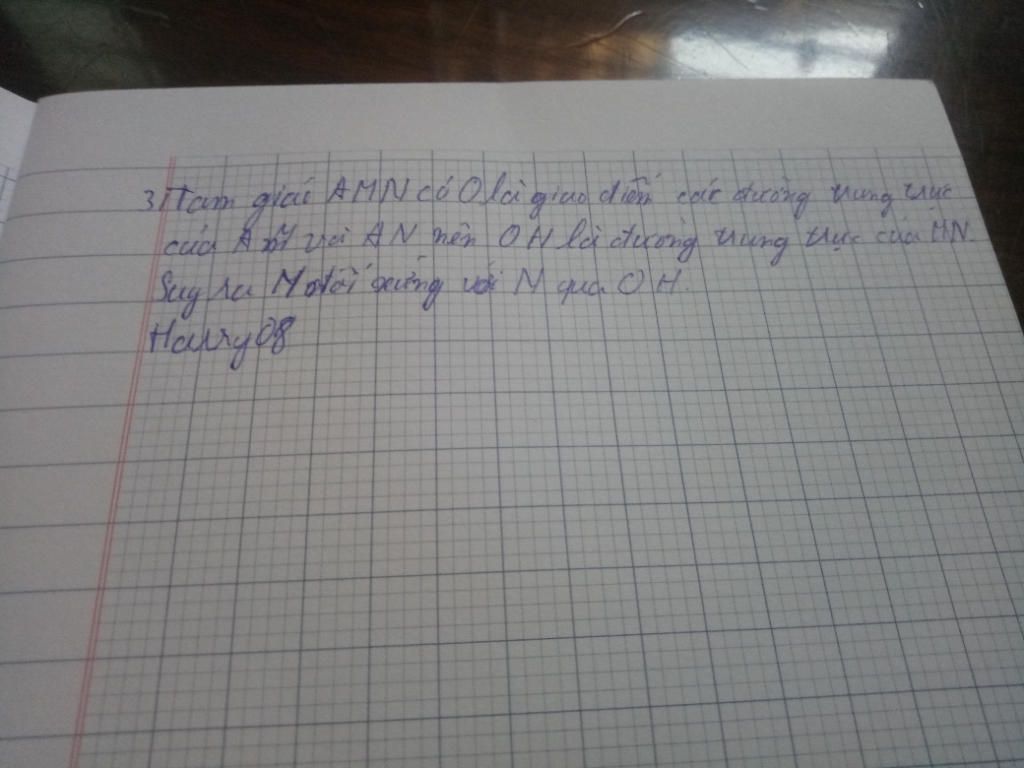 3, Tam giác AMN có O là giao điểm các đường trung trực
của AM và AN nên OH là đường trung trực của MN.
Suy ra M đối xứng với N qua OH.
Harry08